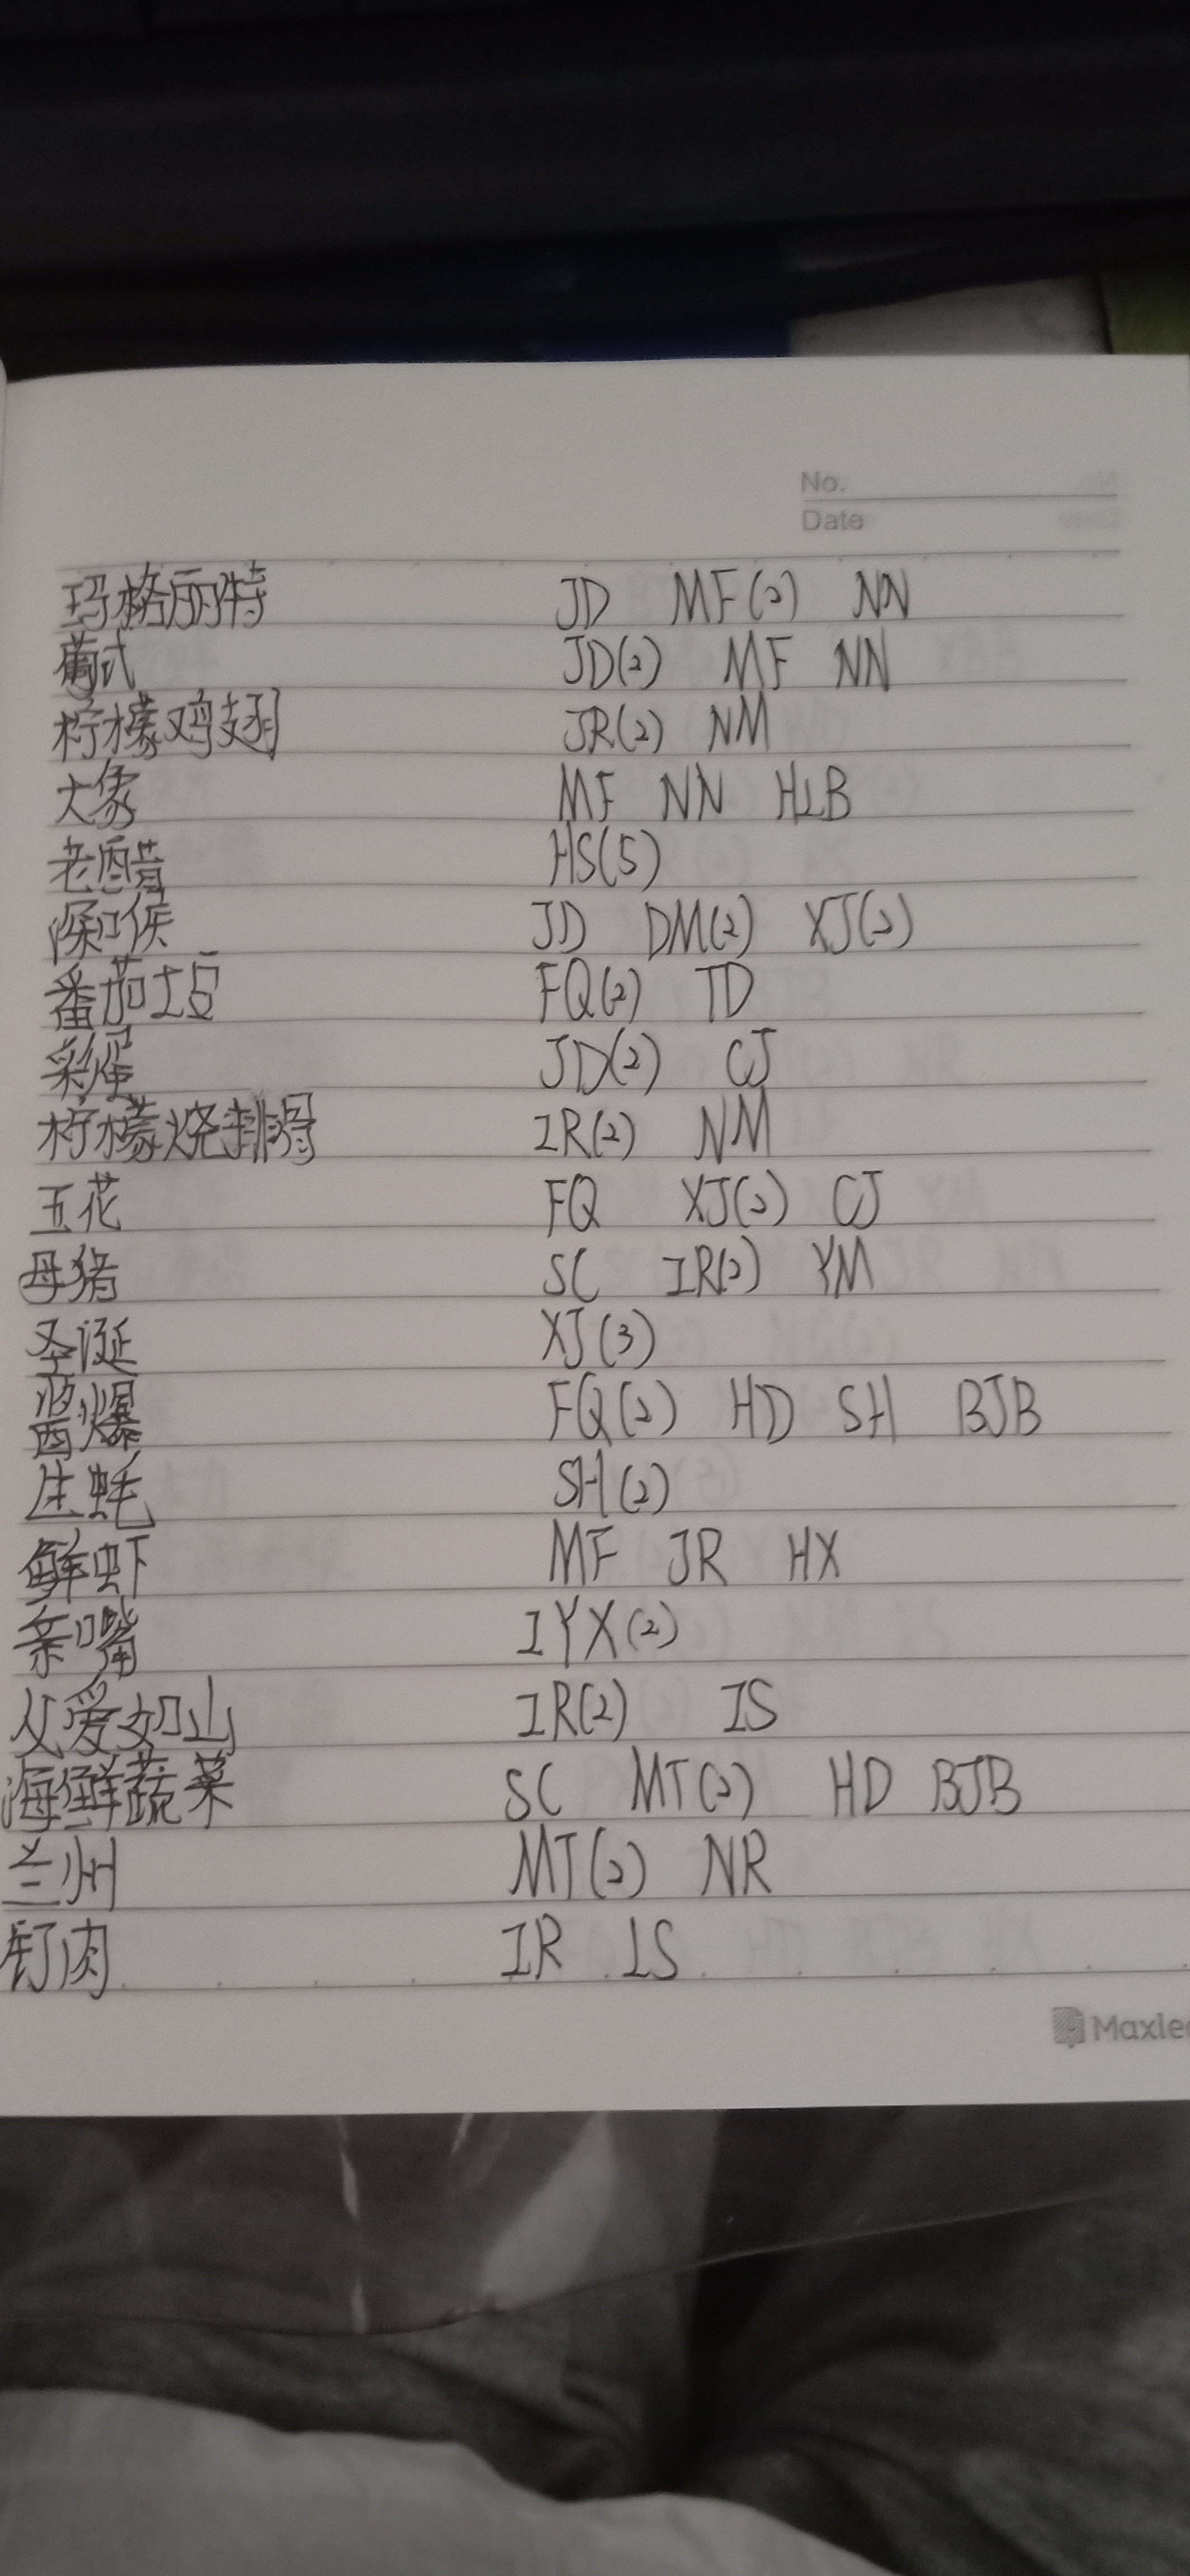 No.
Date
玛格丽特 JD MF(2) NN
葡式 JD(2) MF NN
柠檬鸡翅 JR(2) NM
大象 MF NN HLB
老醋 HS(5)
深口侯 JD DM(2) XJ(2)
番茄土豆 FQ(2) TD
彩蛋 JD(2) CJ
柠檬烧排骨 IR(2) NM
五花 FQ XJ(2) CJ
母猪 SC IR(2) YM
圣诞 XJ(3)
酱爆 FQ(2) HD SH BJB
生蚝 SH(2)
鲜虾 MF JR HX
亲嘴 IYX(2)
父爱如山 IR(2) IS
海鲜蔬菜 SC MT(2) HD BJB
兰州 MT(2) NR
钉肉 IR IS
Maxle